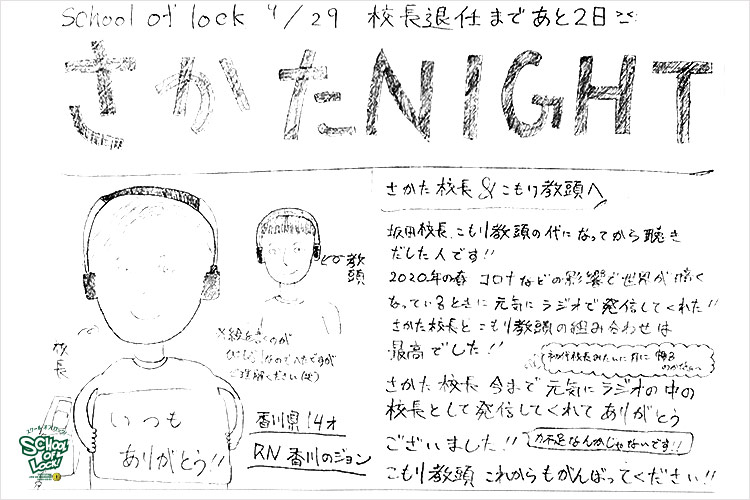 School of lock 4/29 校長退任まであと2日
さかたNIGHT
さかた校長&こもり教頭へ
坂田校長、こもり教頭の代になってから聴き
だした人です!!
2020年の春 コロナなどの影響で世界が暗く
なっているときに元気にラジオで発信してくれた!!
さかた校長とこもり教頭の組み合わせは
最高でした!!
初代校長みたいに月に帰る
さかた校長 今まで元気にラジオの中の
校長として発信してくれてありがとう
ございました!!
力不足なんかじゃないです!!
こもり教頭 これからもがんばってください!!
教頭
校長
※絵を書くのが
なのでへたですが
ご理解ください
いつも
ありがとう!!
香川県14才
RN 香川のジョン
スクールオブロック!
SCHOOL OF LOCK!